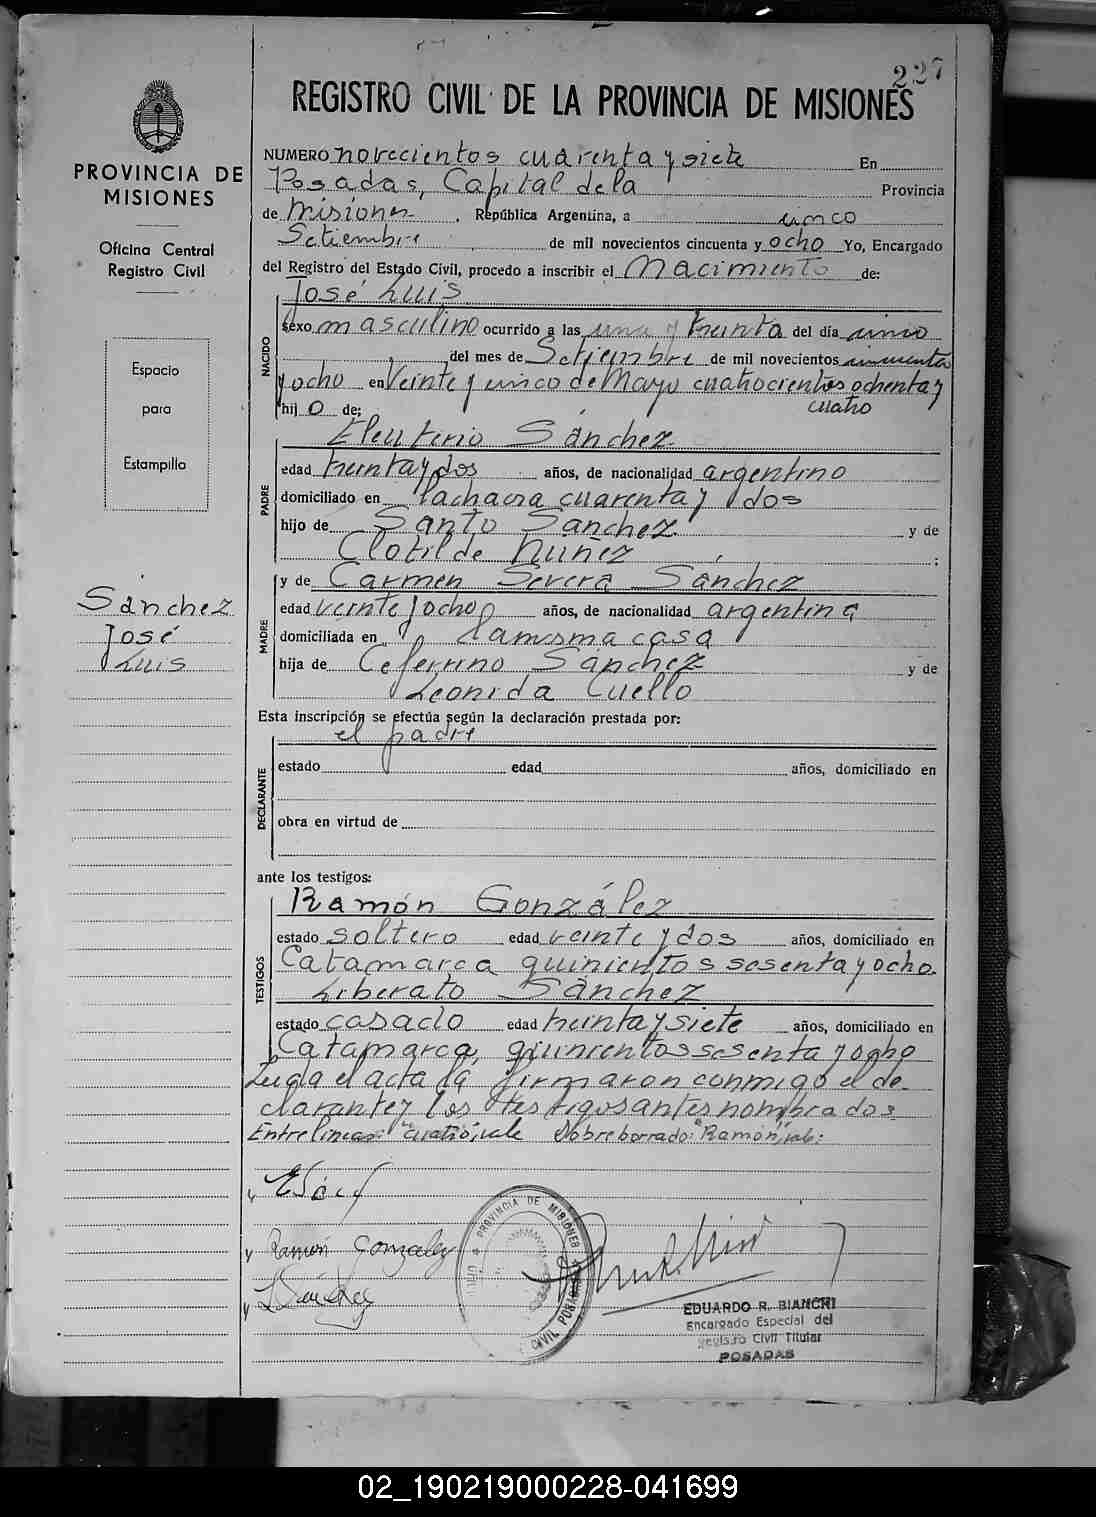 227
REGISTRO CIVIL DE LA PROVINCIA DE MISIONES
PROVINCIA DE
MISIONES
Oficina Central
Registro Civil
Espacio
para
Estampilla
Sánchez
José
Luis
NUMERO novecientos cuarenta y siete En
Posadas, Capital de la Provincia
de Misiones, República Argentina, a cinco
Setiembre de mil novecientos cincuenta y ocho Yo, Encargado
del Registro del Estado Civil, procedo a inscribir el Nacimiento de:
José Luis
NACIDO
sexo masculino ocurrido a las una y treinta del día cinco
del mes de Setiembre de mil novecientos cincuenta
y ocho en Veinte y cinco de Mayo cuatrocientos ochenta y
cuatro
hij o de:
Eleuterio Sánchez
PADRE
edad treinta y dos años, de nacionalidad argentino
domiciliado en la chacra cuarenta y dos
hijo de Santo Sánchez y de
Clotilde Núñez ;
y de Carmen Severa Sánchez
MADRE
edad veinte y ocho años, de nacionalidad argentina
domiciliada en la misma casa
hija de Ceferino Sánchez y de
Leonida Cuello
Esta inscripción se efectúa según la declaración prestada por:
el padre
DECLARANTE
estado edad años, domiciliado en
obra en virtud de
ante los testigos:
Ramón González
TESTIGOS
estado soltero edad veinte y dos años, domiciliado en
Catamarca quinientos sesenta y ocho.
Liberato Sánchez
estado casado edad treinta y siete años, domiciliado en
Catamarca, quinientos sesenta y ocho
Leída el acta la firmaron conmigo el de-
clarante y los testigos antes nombrados
Entre líneas: "cuatro", vale Sobreborrado: "Ramón", vale:
Ramón Gonzalez
L Sánchez
PROVINCIA DE MISIONES
CIVIL POSADAS
EDUARDO R. BIANCHI
Encargado Especial del
Registro Civil Titular
POSADAS
02_190219000228-041699